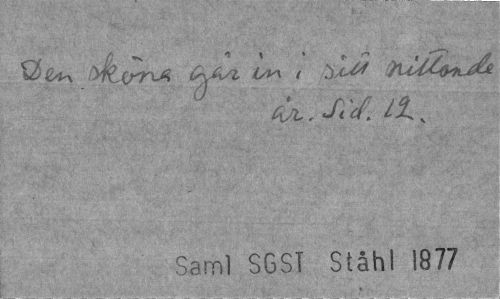 Den sköna går in i sitt nittonde
år. Sid. 12.
Saml SGST Ståhl 1877